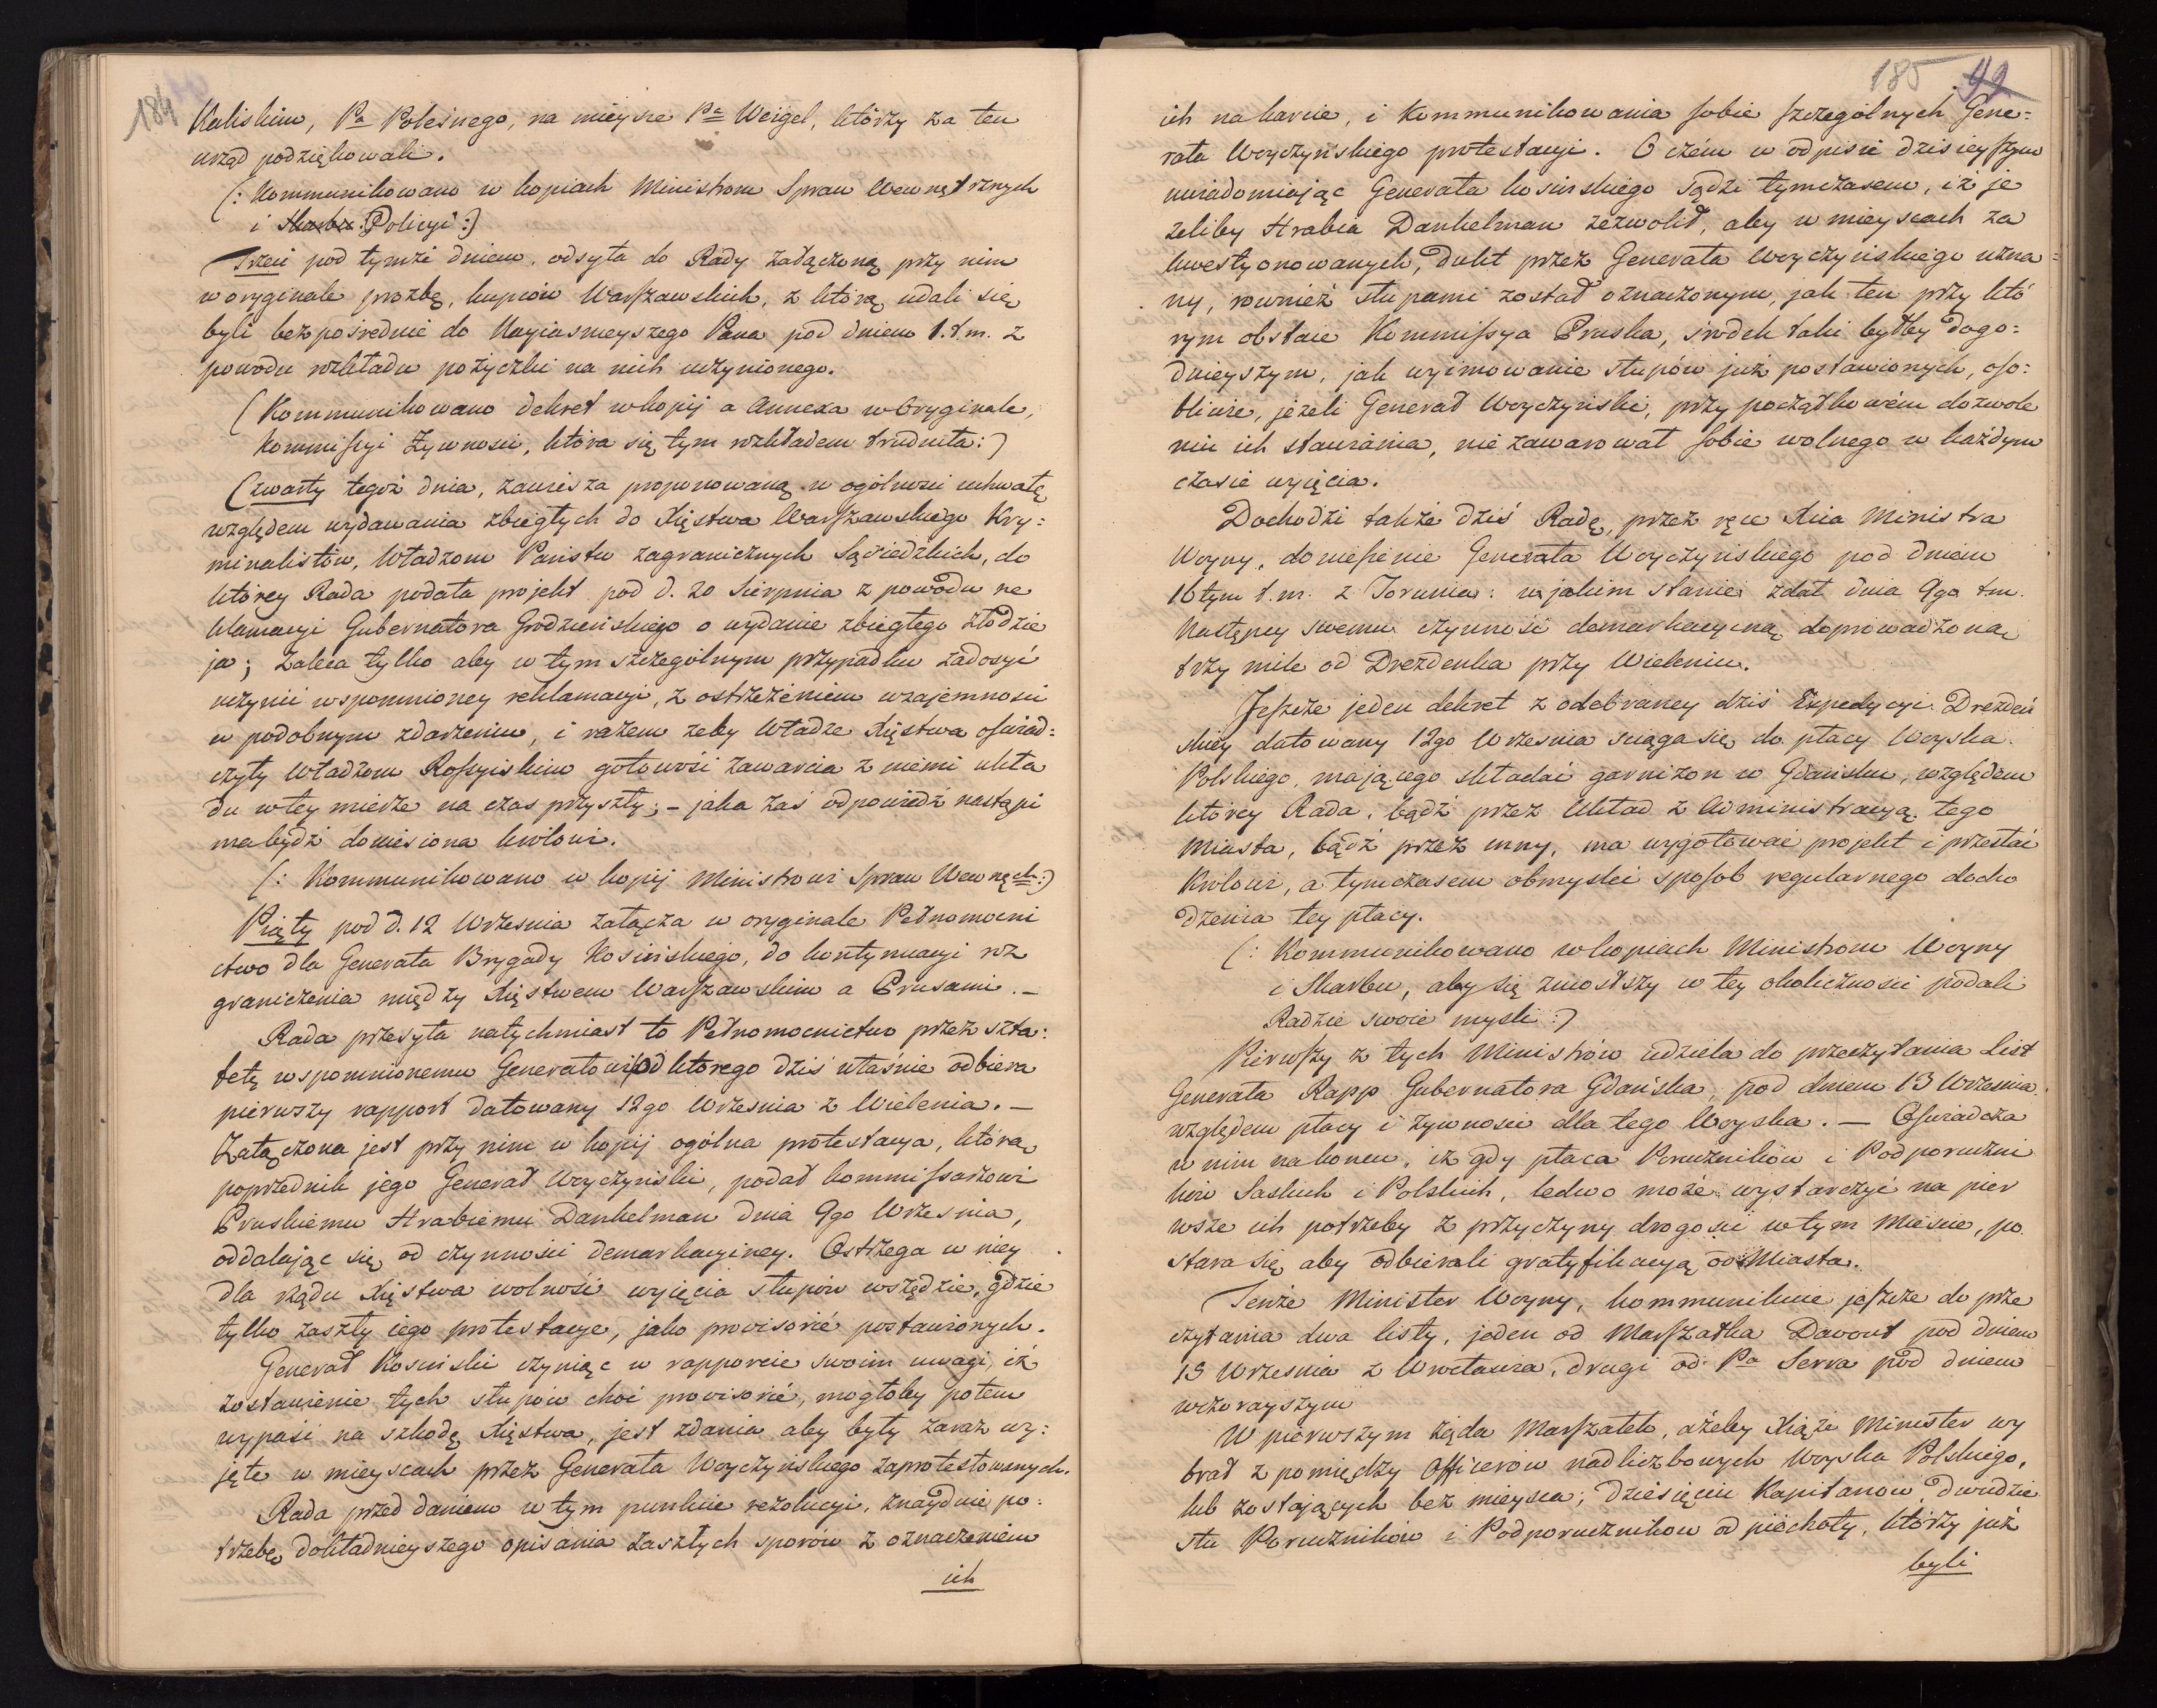 184
Kaliskim, Pa Poleśnego, na mieysce Pa Weigel, którzy za ten
urząd podziękowali.
(: Kommunikowano w kopiach Ministrom Spraw Wewnętrznych
i Skarbu Policyi :)
Trzeci pod tymże dniem, odsyła do Rady załączoną przy nim
w oryginale prozbę, kupców Warszawskich, z którą udali się
byli bezpośrednie do Nayiasnieyszego Pana pod dniem 1. t. m. z
powodu rozkładu pożyczki na nich uczynionego.
(Kommunikowano dekret w kopij a Annexa w Oryginale,
Kommissyi Żywnosci, która się tym rozkładem trudniła:)
Czwarty tegoż dnia, zawiesza proponowaną w ogólnosci uchwałę
względem wydawania zbiegłych do Xięstwa Warszawskiego Kry=
minalistów, Władzom Państw zagranicznych Sąsiedzkich, do
którey Rada podała projekt pod d. 20 Sierpnia z powodu re
klamacyi Gubernatora Grodzieńskiego o wydanie zbiegłego złodzie
ja; zaleca tylko aby w tym szczególnym przypadku zadosyć
uczynić wspomnioney reklamacyi, z ostrzeżeniem wzajemnosci
w podobnym zdarzeniu, i razem żeby Władze Xięstwa oświad=
czyły Władzom Rossyiskim gotowość zawarcia z niemi ukła
du w tey mierze na czas przyszły; – jaka zaś odpowiedź nastąpi
ma bydź doniesiona Królowi.
(: Kommunikowano w kopij Ministrowi Spraw Wewnęch :)
Piąty pod d. 12 Września załącza w oryginale Pełnomocni
ctwo dla Generała Brygady Kosińskiego, do kontynuacyi roz
graniczenia między Xięstwem Warszawskim a Prusami. –
Rada przesyła natychmiast to Pełnomocnictwo przez szta=
fetę wspomnionemu Generałowi, od którego dziś właśnie odbiera
pierwszy rapport datowany 12go Września z Wielenia. –
Załączona jest przy nim w kopij ogólna protestacya, którą
poprzednik jego Generał Woyczyński, podał kommissarzowi
Pruskiemu Hrabiemu Dankelman dnia 9go Września,
oddalając się od czynności demarkacyiney. Ostrzega w niey
dla rządu Xięstwa wolność wyięcia słupów wszędzie, gdzie
tylko zaszły iego protestacye, jako provisorié postawionych.
Generał Kosiński czyniąc w rapporcie swoim uwagi, iż
zostawienie tych słupów choć provisorié, mogłoby potem
wypaść na szkodę Xięstwa, jest zdania aby były zaraz wy=
jęte w mieyscach przez Generała Woyczyńskiego zaprotestowanych.
Rada przed daniem w tym punkcie rezolucyi, znayduie po=
trzebę dokładnieyszego opisania zaszłych sporów z oznaczeniem
ich
185 92
ich na karcie, i kommunikowania sobie szczególnych Gene=
rała Woyczyńskiego protestacyi. O czém w odpisie dzisieyszym
uwiadomiając Generała Kosińskiego sądzi tymczasem, iż je
żeliby Hrabia Dankelman zezwolił, aby w mieyscach za
kwestyonowanych, dukt przez Generała Woyczyńskiego uzna=
ny, również słupami został oznaczonym, jak ten przy któ
rym obstaie Kommissya Pruska, środek taki byłby dogo=
dnieyszym, jak wyimowanie słupów już postawionych, oso=
bliwie, jeżeli Generał Woyczyński, przy początkowém dozwole
niu ich stawiania, nie zawarował sobie wolnego w każdym
czasie wyięcia.
Dochodzi także dziś Radę, przez ręce Xcia Ministra
Woyny, doniesienie Generała Woyczyńskiego pod dniem
16tym t. m. z Torunia: w jakim stanie zdał dnia 9go t m.
Następcy swemu czynność demarkacyiną doprowadzoną
trzy mile od Drezdenka przy Wieleniu.
Jeszcze jeden dekret z odebraney dziś Expedycyi Drezdeń
skiey datowany 12go Września sciąga się do płacy Woyska
Polskiego, mającego składać garnizon w Gdańsku, względem
którey Rada, bądź przez Układ z Administracyą tego
Miasta, bądź przez inny, ma wygotować projekt i przesłać
Królowi, a tymczasem obmyslić sposob regularnego docho
dzenia tey płacy.
(: Kommunikowano w kopiach Ministrom Woyny
i Skarbu, aby się zniosłszy w tey okoliczności podali
Radzie swoie mysli :)
Pierwszy z tych Ministrów udziela do przeczytania List
Generała Rapp Gubernatora Gdańska, pod dniem 13 Września
względem płacy i żywnosci dla tego Woyska. – Oświadcza
w nim na koncu, iż gdy płaca Poruczników i Podporuczni
ków Saskich i Polskich, ledwo może wystarczyć na pier
wsze ich potrzeby z przyczyny drogosci w tym Mieście, po
stara się aby odbierali gratyfikacyą od Miasta.
Tenże Minister Woyny, kommunikuie jeszcze do prze
czytania dwa listy, jeden od Marszałka Davout pod dniem
15 Września z Wrocławia, drugi od Pa Serra pod dniem
wczorayszym
W pierwszym żąda Marszałek, ażeby Xiąże Minister wy
brał z pomiędzy Officerow nadliczbowych Woyska Polskiego,
lub zostających bez mieysca; dziesięciu Kapitanow, dwudzie
stu Poruczników i Podporuczników od piechoty, którzy już
byli